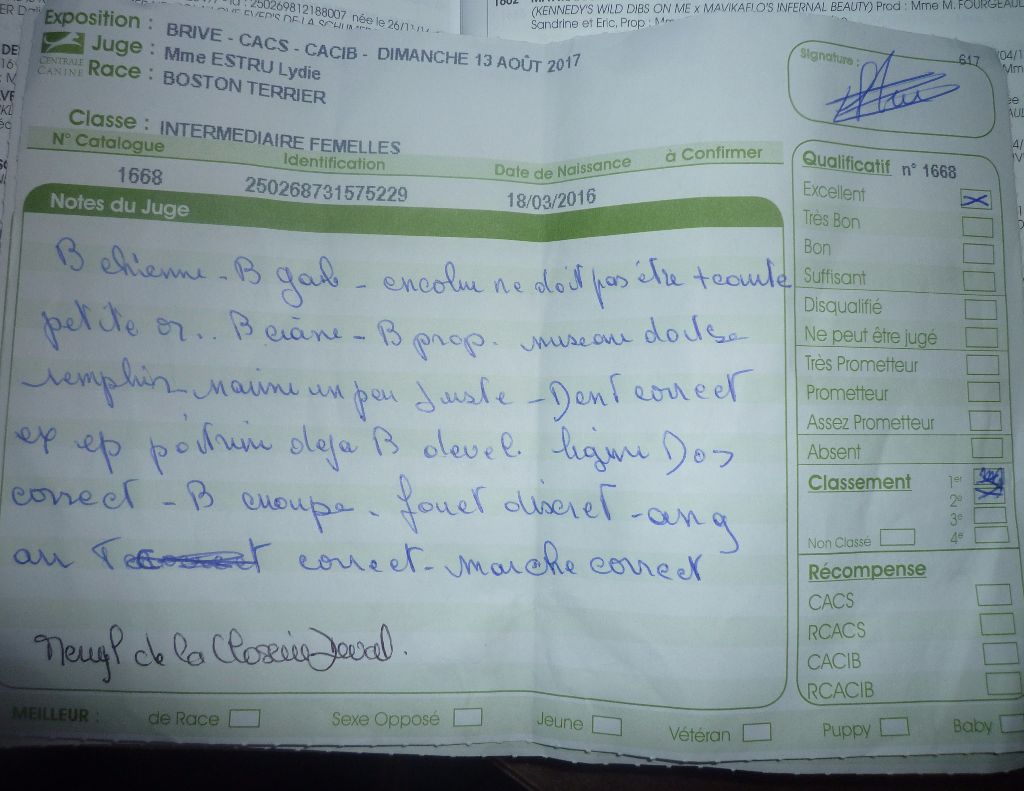 250269812188007 née le 26/11/
(KENNEDY'S WILD DIBS ON ME x MAVIKAFLO'S INFERNAL BEAUTY) Prod : Mme M. FOURGEAUL
Sandrine et Eric, Prop :
Exposition : BRIVE - CACS - CACIB - DIMANCHE 13 AOÛT 2017
Juge : Mme ESTRU Lydie
CENTRALE CANINE
Race : BOSTON TERRIER
Signature :
617
Classe : INTERMEDIAIRE FEMELLES
N° Catalogue Identification Date de Naissance à Confirmer
1668 250268731575229 18/03/2016
Notes du Juge
B chienne - B gab - encolure ne doit pas être + courte
petite or.. B crâne - B prop. museau doit se
remplir - narine un peu juste - Dent correct
ex ep poitrine deja B devel. ligne Dos
correct - B croupe. fouet discret - ang
au correct - marche correct
de la
Qualificatif n° 1668
Excellent
Très Bon
Bon
Suffisant
Disqualifié
Ne peut être jugé
Très Prometteur
Prometteur
Assez Prometteur
Absent
Classement 1er
2e
3e
Non Classé 4e
Récompense
CACS
RCACS
CACIB
RCACIB
MEILLEUR : de Race Sexe Opposé Jeune Vétéran Puppy Baby